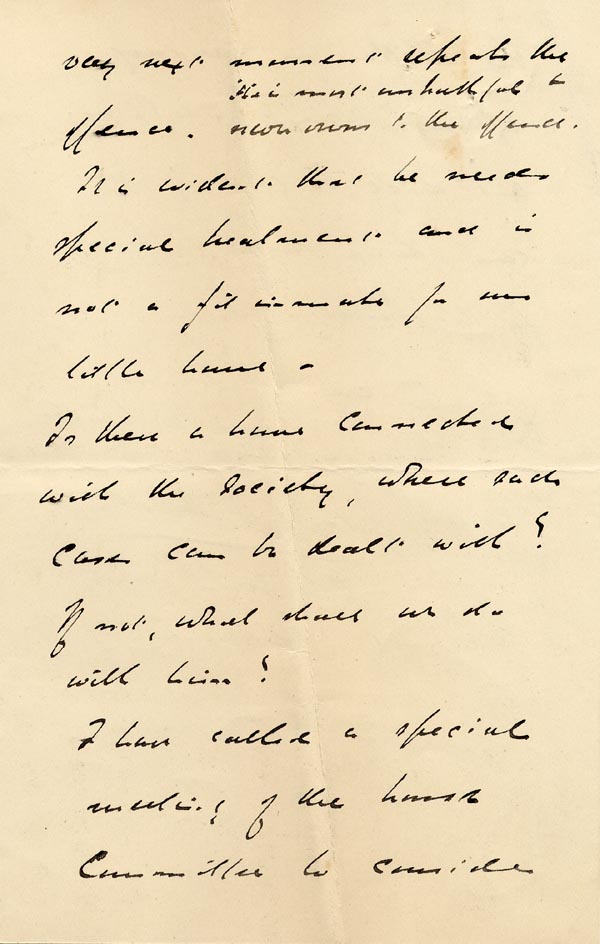 very next moment repeats the
He is most unhealthful &
offence. never owns to the offence.
It is evident that he needs
special treatment and is
not a fit inmate for our
little home -
Is there a home connected
with the Society, where such
cases can be dealt with?
If not, what shall we do
with him?
I have called a special
meeting of the house
Committee to consider